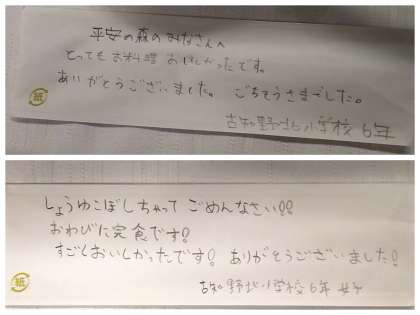 平安の森のみなさんへ
とってもお料理 おいしかったです。
ありがとうございました。 ごちそうさまでした。
古知野北小学校 6年
紙
しょうゆこぼしちゃって ごめんなさい!!
おわびに完食です!
すごくおいしかったです! ありがとうございました!
古知野北小学校6年 女子
紙